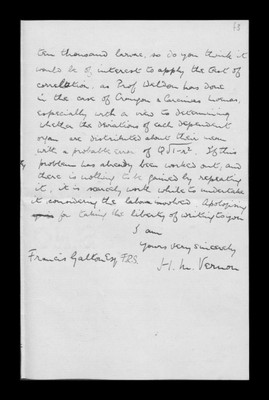 13
ten thousand larvae, so do you think it
would be of interest to apply the test of
correlation, as Prof Weldon has done
in the case of Crangon & Carcinus moenas,
especially with a view to determining
whether the deviations of each dependent
organ are distributed about their mean
with a probable error of Q√1-r². If this
problem has already been worked out, and
there is nothing to be gained by repeating
it, it is scarcely worth while to undertake
it considering the labour involved. Apologising
for taking the liberty of writing to you
I am
Yours very sincerely
Francis Galton Esq F.R.S.
H. M. Vernon